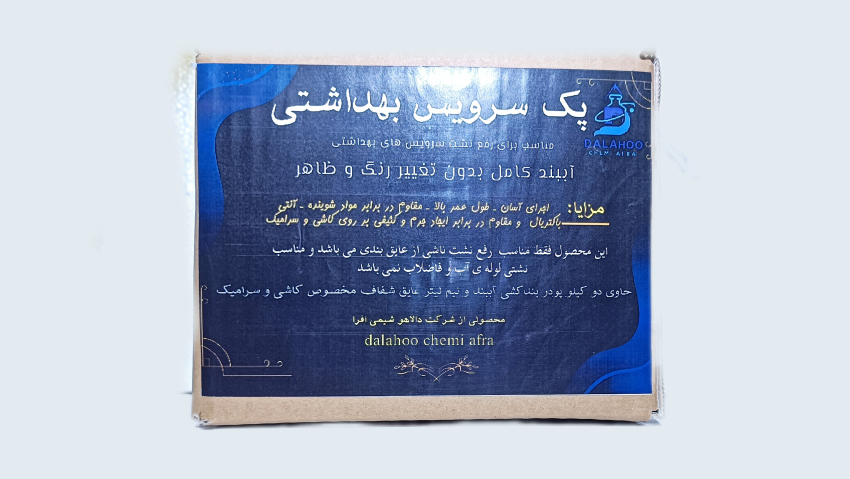 پک سرویس بهداشتی
DALAHOO
CHEMI AFRA
مناسب برای رفع نشت سرویس های بهداشتی
آببند کامل بدون تغییر رنگ و ظاهر
مزایا: اجرای آسان - طول عمر بالا - مقاوم در برابر مواد شوینده - آنتی
باکتریال و مقاوم در برابر ایجاد جرم و کثیفی بر روی کاشی و سرامیک
این محصول فقط مناسب رفع نشت ناشی از عایق بندی می باشد و مناسب
نشتی لوله ی آب و فاضلاب نمی باشد
حاوی دو کیلو پودر بندکشی آببند و نیم لیتر عایق شفاف مخصوص کاشی و سرامیک
محصولی از شرکت دالاهو شیمی افرا
dalahoo chemi afra